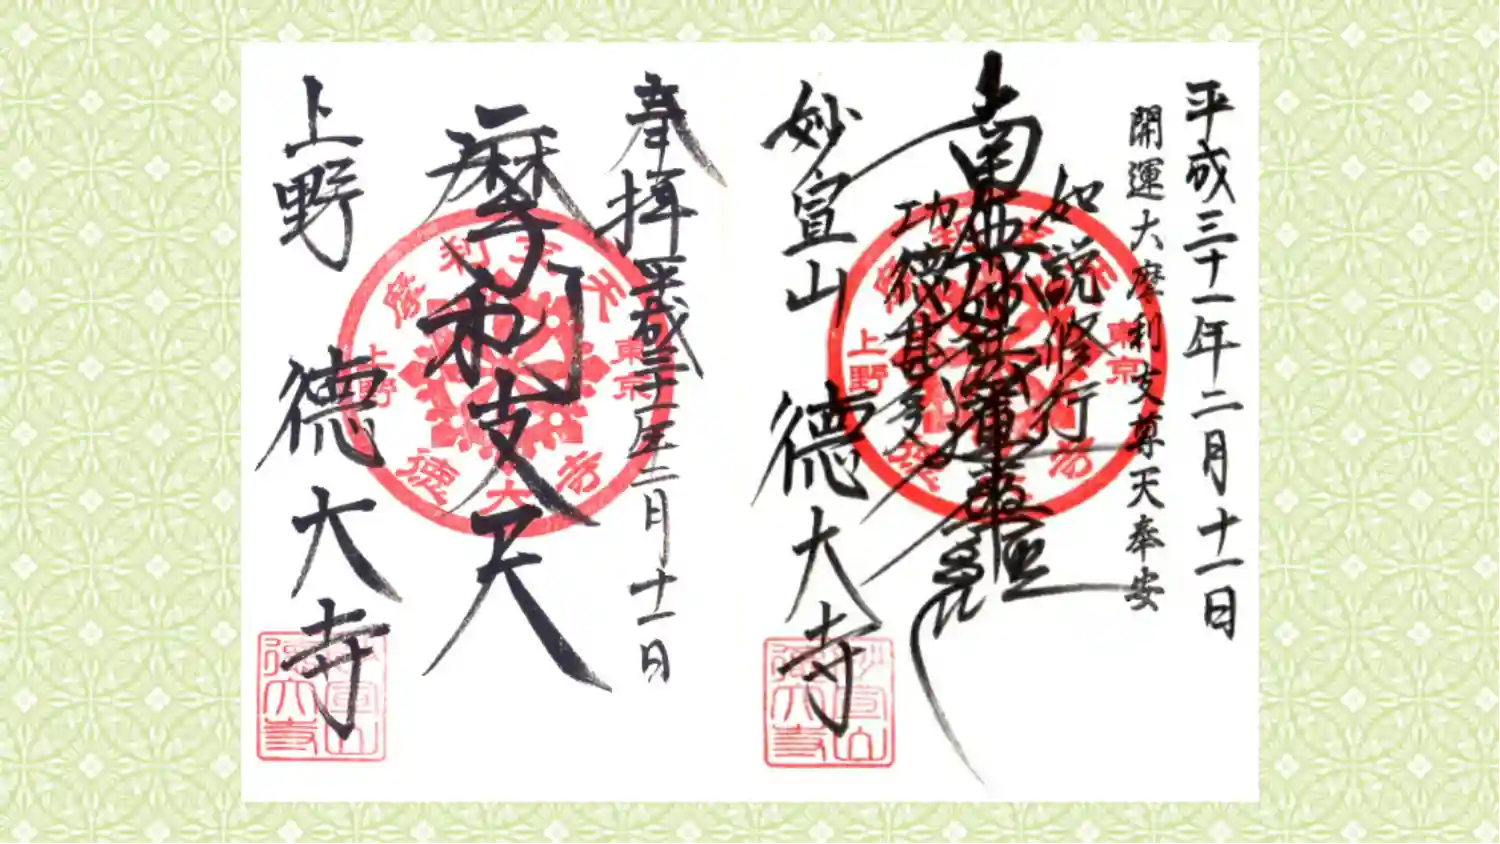 平成三十一年二月十一日
開運大摩利支尊天奉安
如説修行
南無妙法蓮華経
功徳甚多
妙宣山 徳大寺
東京
上野
妙宣山
徳大寺
奉拝 平成三十一年二月十一日
摩利支天
上野 徳大寺
摩利支天
東京
上野
徳大寺
妙宣山
徳大寺